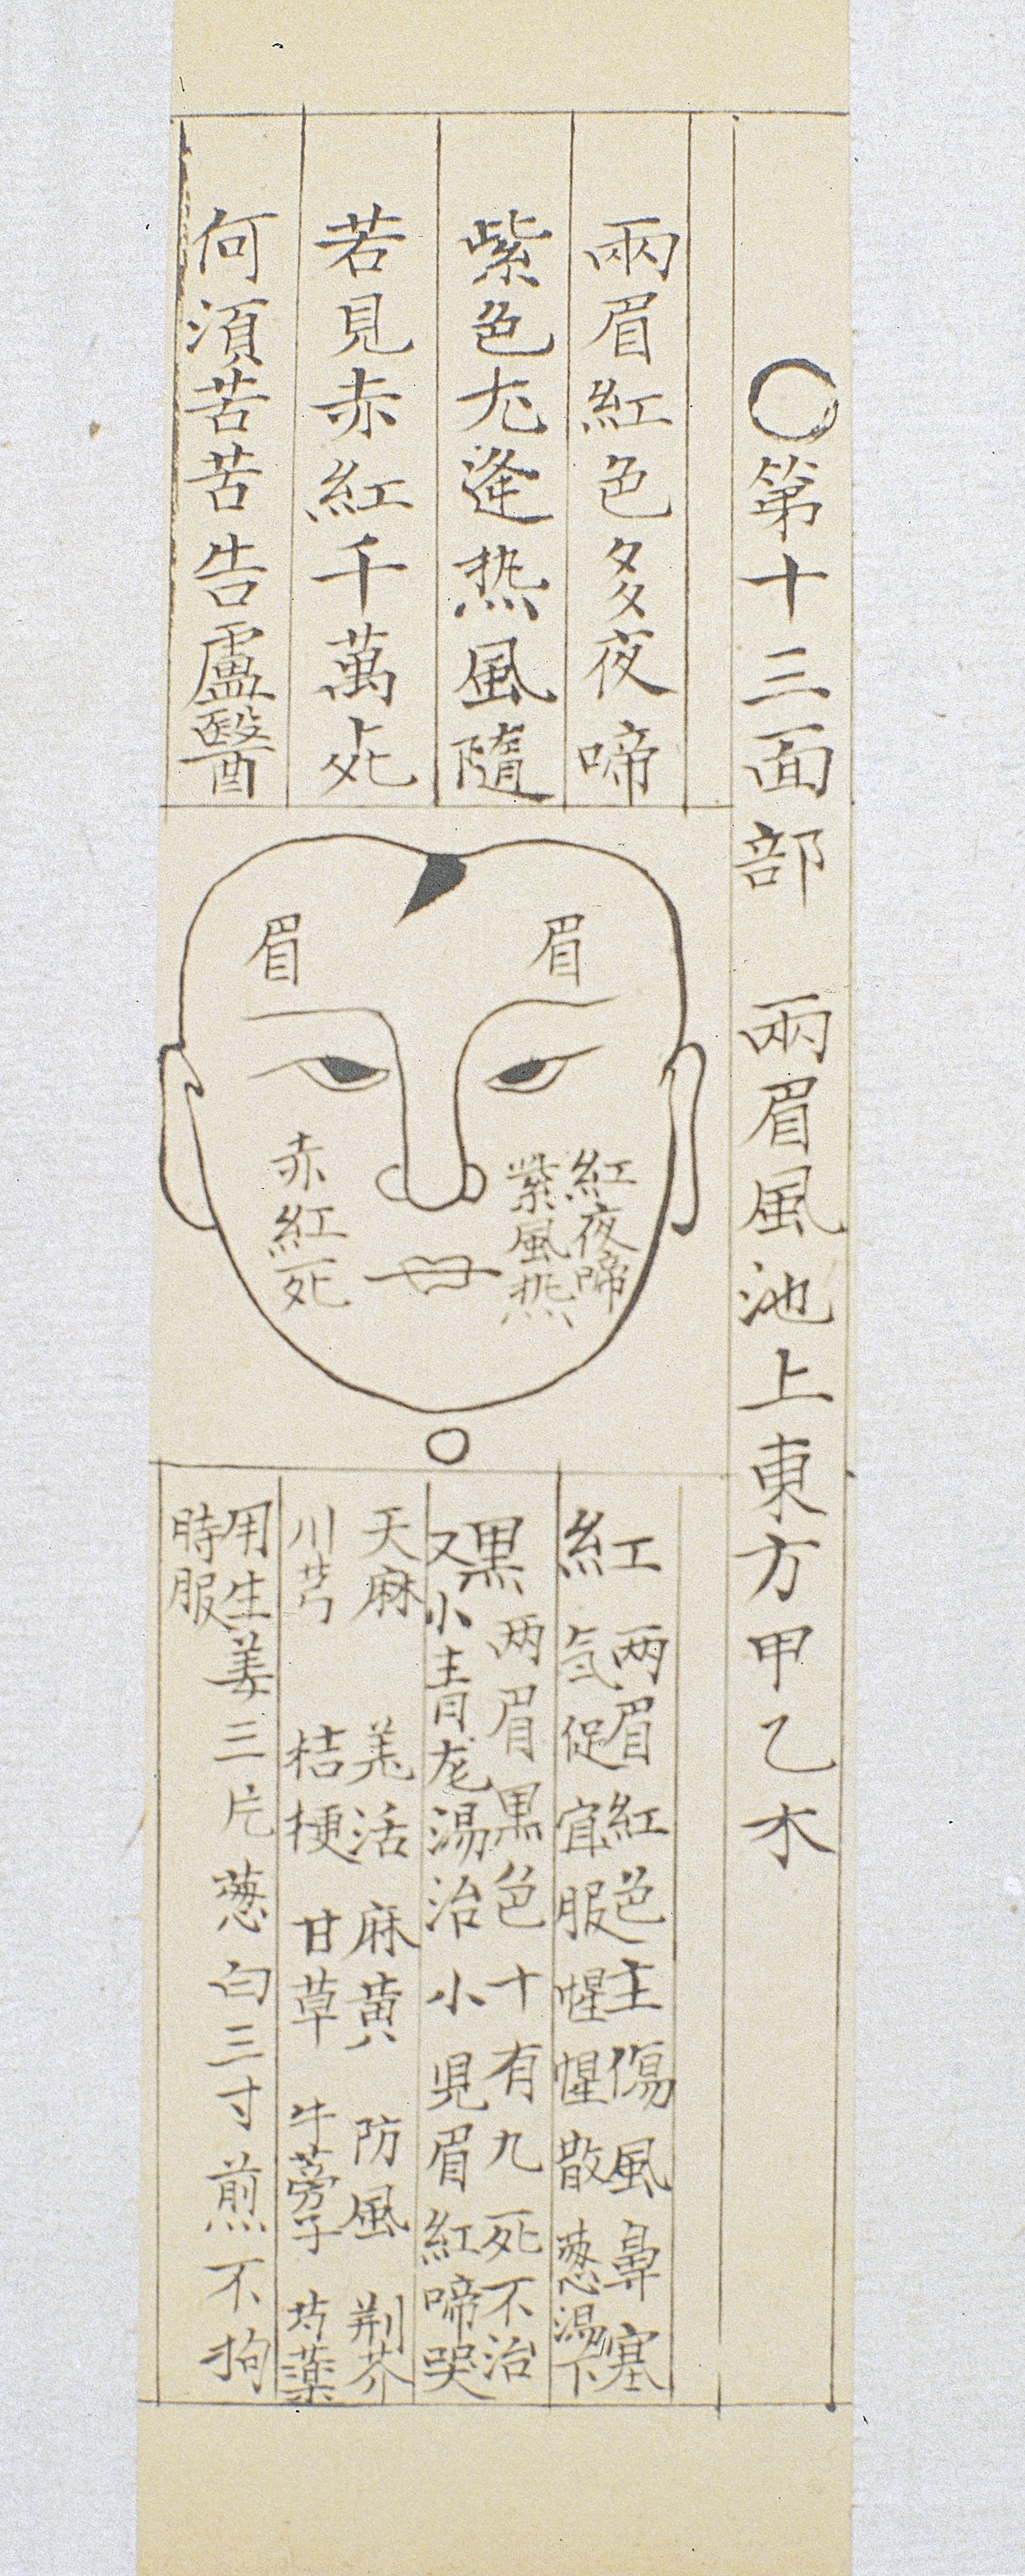 〇第十三面部　兩眉風池上東方甲乙木
兩眉紅色多夜啼
紫色尤逢热風隨
若見赤紅千萬死
何須苦苦告盧醫
眉
眉
紅夜啼
紫風热
赤紅死
紅　两眉紅色主傷風鼻塞
気促宜服惺惺散葱湯下
黑　两眉黑色十有九死不治
又小青龙湯治小児眉紅啼哭
天麻　羌活　麻黄　防風　荆芥
川芎　桔梗　甘草　牛蒡子　芍薬
用生姜三片葱白三寸煎不拘
時服